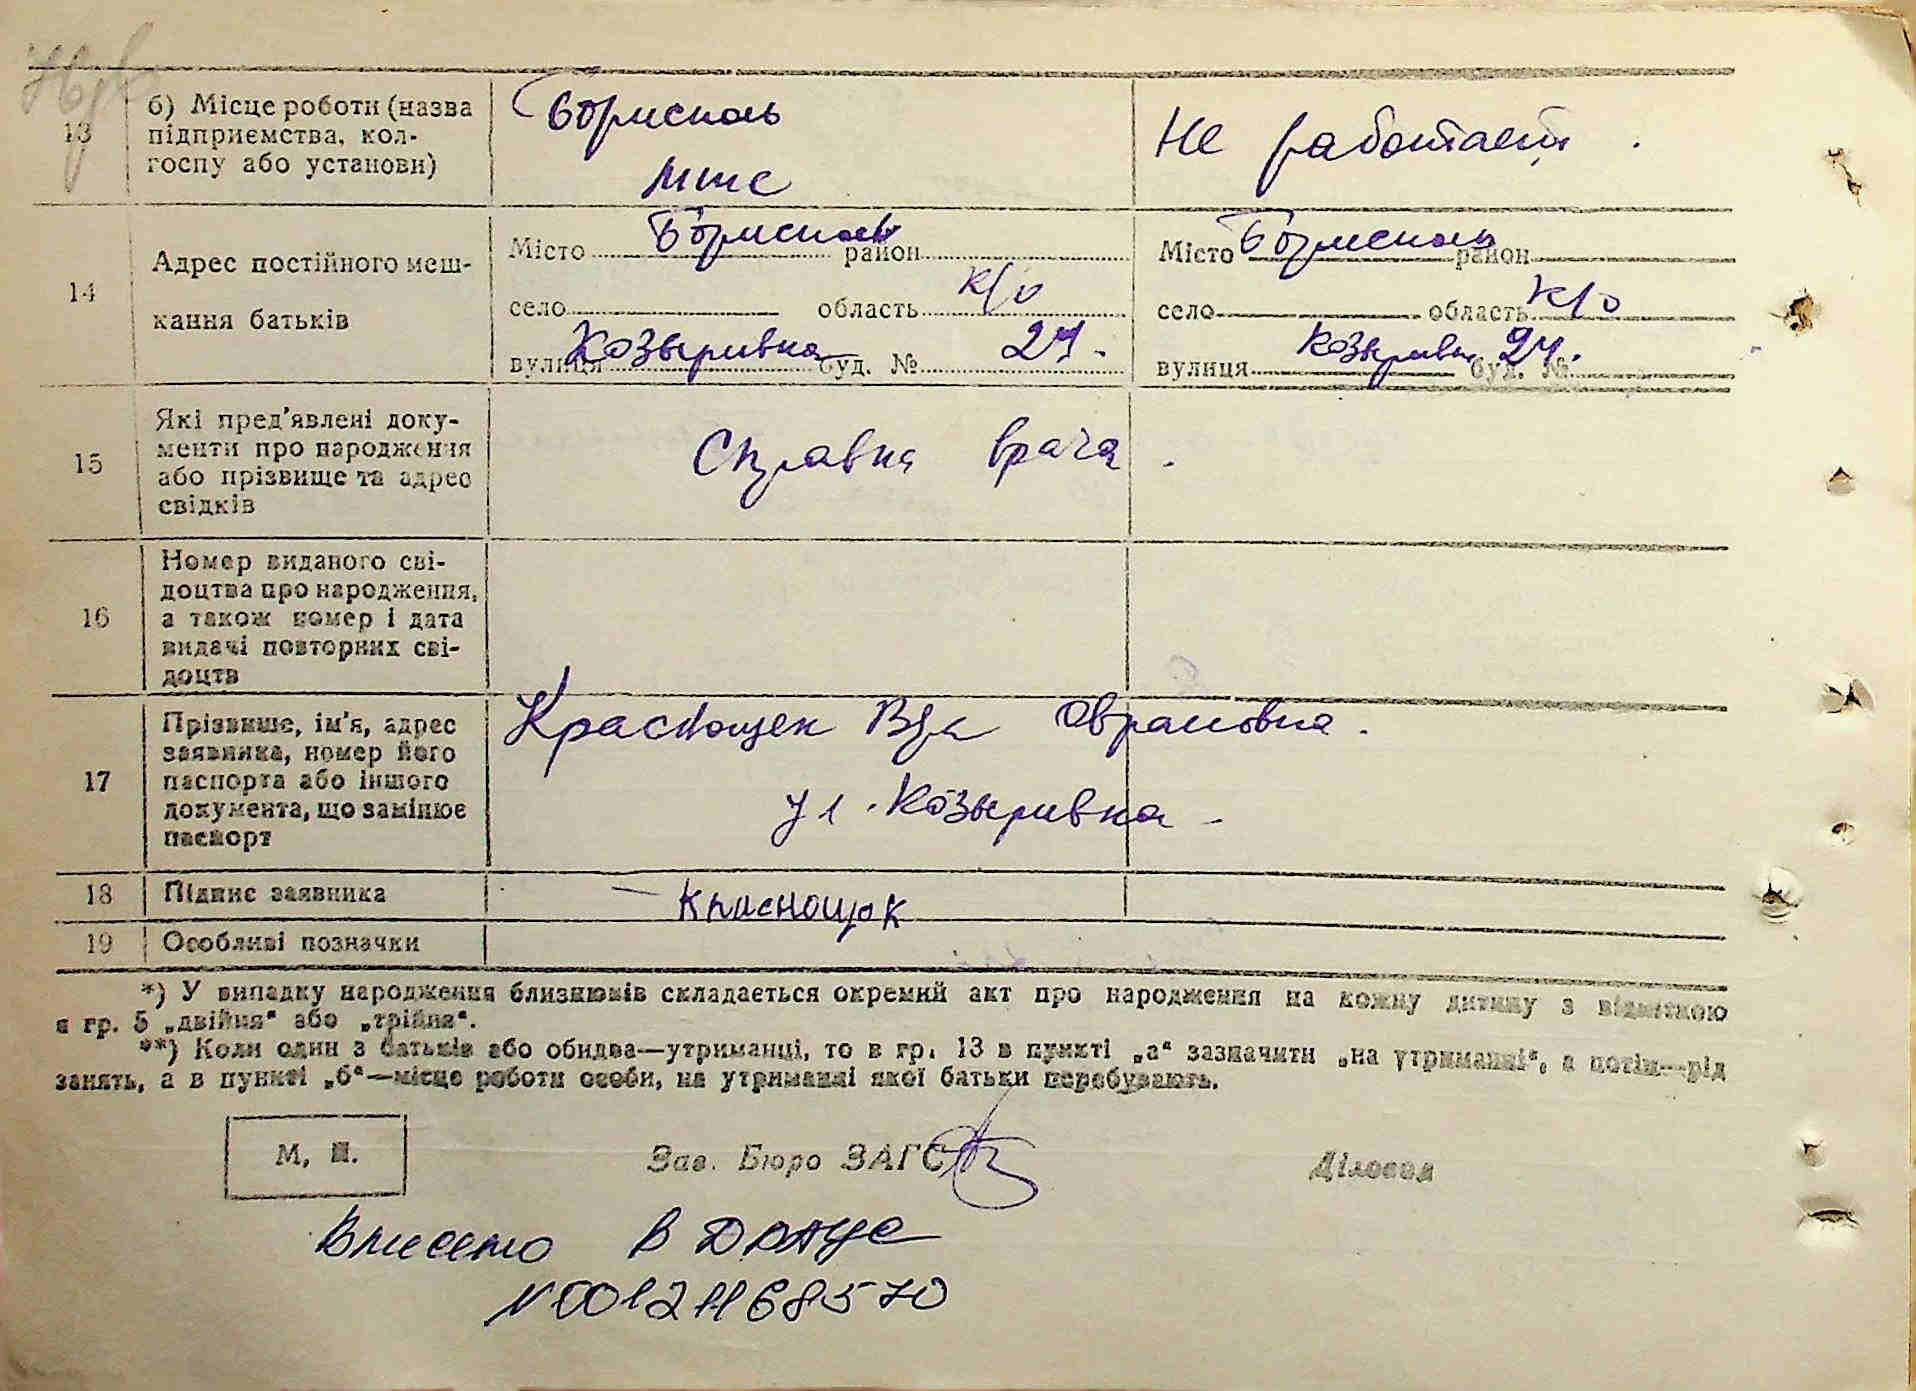 13
б) Місце роботи (назва
підприємства, кол-
госпу або установи)
Борисполь
мтс
Не работает.
14
Адрес постійного меш-
кання батьків
Місто Борисполь район
село область К/о
вулиця Козыривка буд. № 24.
Місто Борисполь район
село область К/о
вулиця Козыривка буд. № 24.
15
Які пред'явлені доку-
менти про народження
або прізвище та адрес
свідків
Справка врача.
16
Номер виданого сві-
доцтва про народження,
а також номер і дата
видачі повторних сві-
доцтв
17
Прізвище, ім'я, адрес
заявника, номер його
паспорта або іншого
документа, що замінює
паспорт
Краснощек Аврамовна.
ул. Козыривка
18
Підпис заявника
Краснощок
19
Особливі позначки
*) У випадку народження близнюків складається окремий акт про народження на кожну дитину з відміткою
в гр. 5 „двійня" або „трійня".
**) Коли один з батьків або обидва—утриманці, то в гр. 13 в пункті „а" зазначити „на утриманні", а потім—рід
занять, а в пункті „б"—місце роботи особи, на утриманні якої батьки перебувають.
М. П.
Зав. Бюро ЗАГС
Діловод
Внесено в ДРАЦС
№00121168570